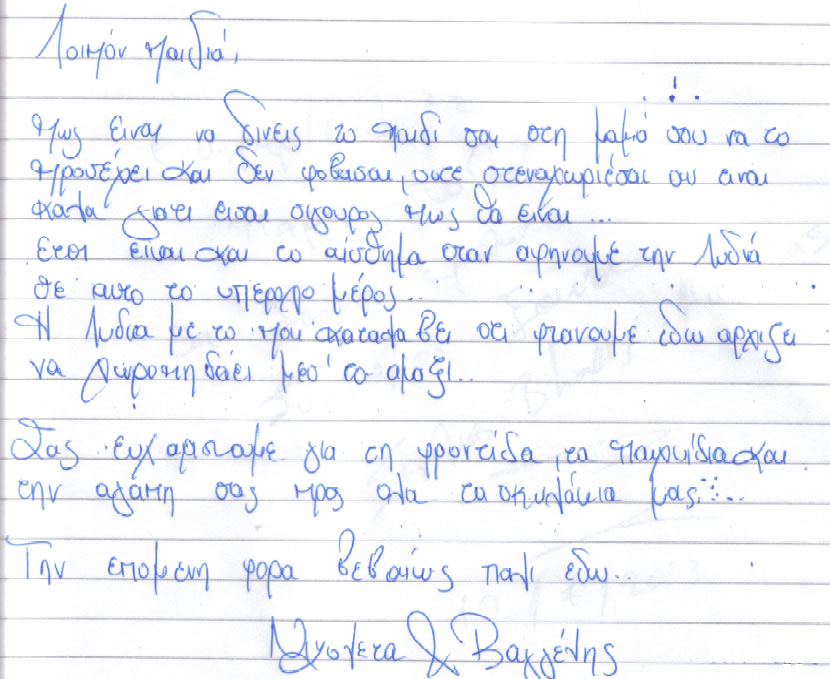 Λοιπόν παιδιά,
Πως ειναι να δινεις το παιδι σου στη μαμά σου να το
προσέχει και δεν φοβασαι, ουτε στεναχωριέσαι αν ειναι
καλα γιατι εισαι σιγουρος πως θα ειναι...
Ετσι είναι και το αίσθημα οταν αφηνουμε την Λυδιά
σε αυτο το υπεροχο μέρος..
Η Λυδια με το που καταλαβει οτι φτανουμε εδω αρχιζει
να χωροπηδάει μεσ' το αμαξι..
Σας ευχαριστουμε για τη φροντίδα, τα παιχνίδια και
την αγάπη σας προς ολα τα σκυλάκια μας...
Την επομενη φορα βεβαίως παλι εδω..
& Βαγγέλης